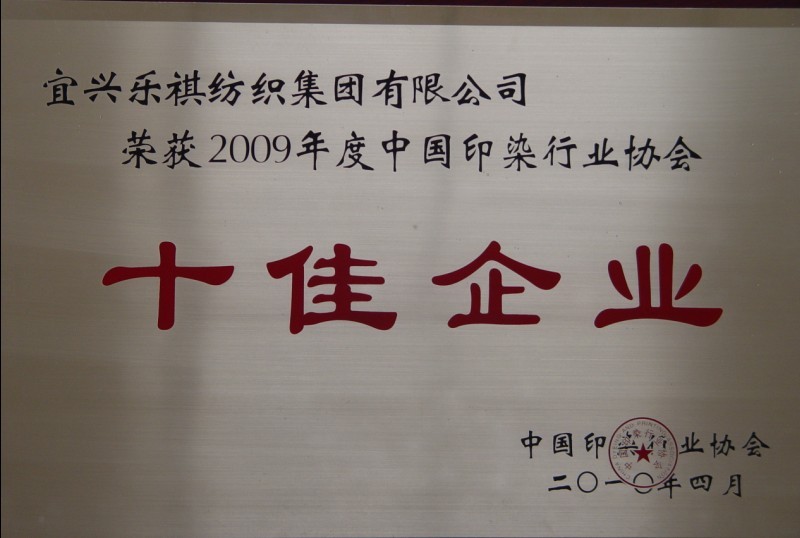 宜兴乐祺纺织集团有限公司
荣获2009年度中国印染行业协会
十佳企业
中国印染行业协会
二〇一〇年四月